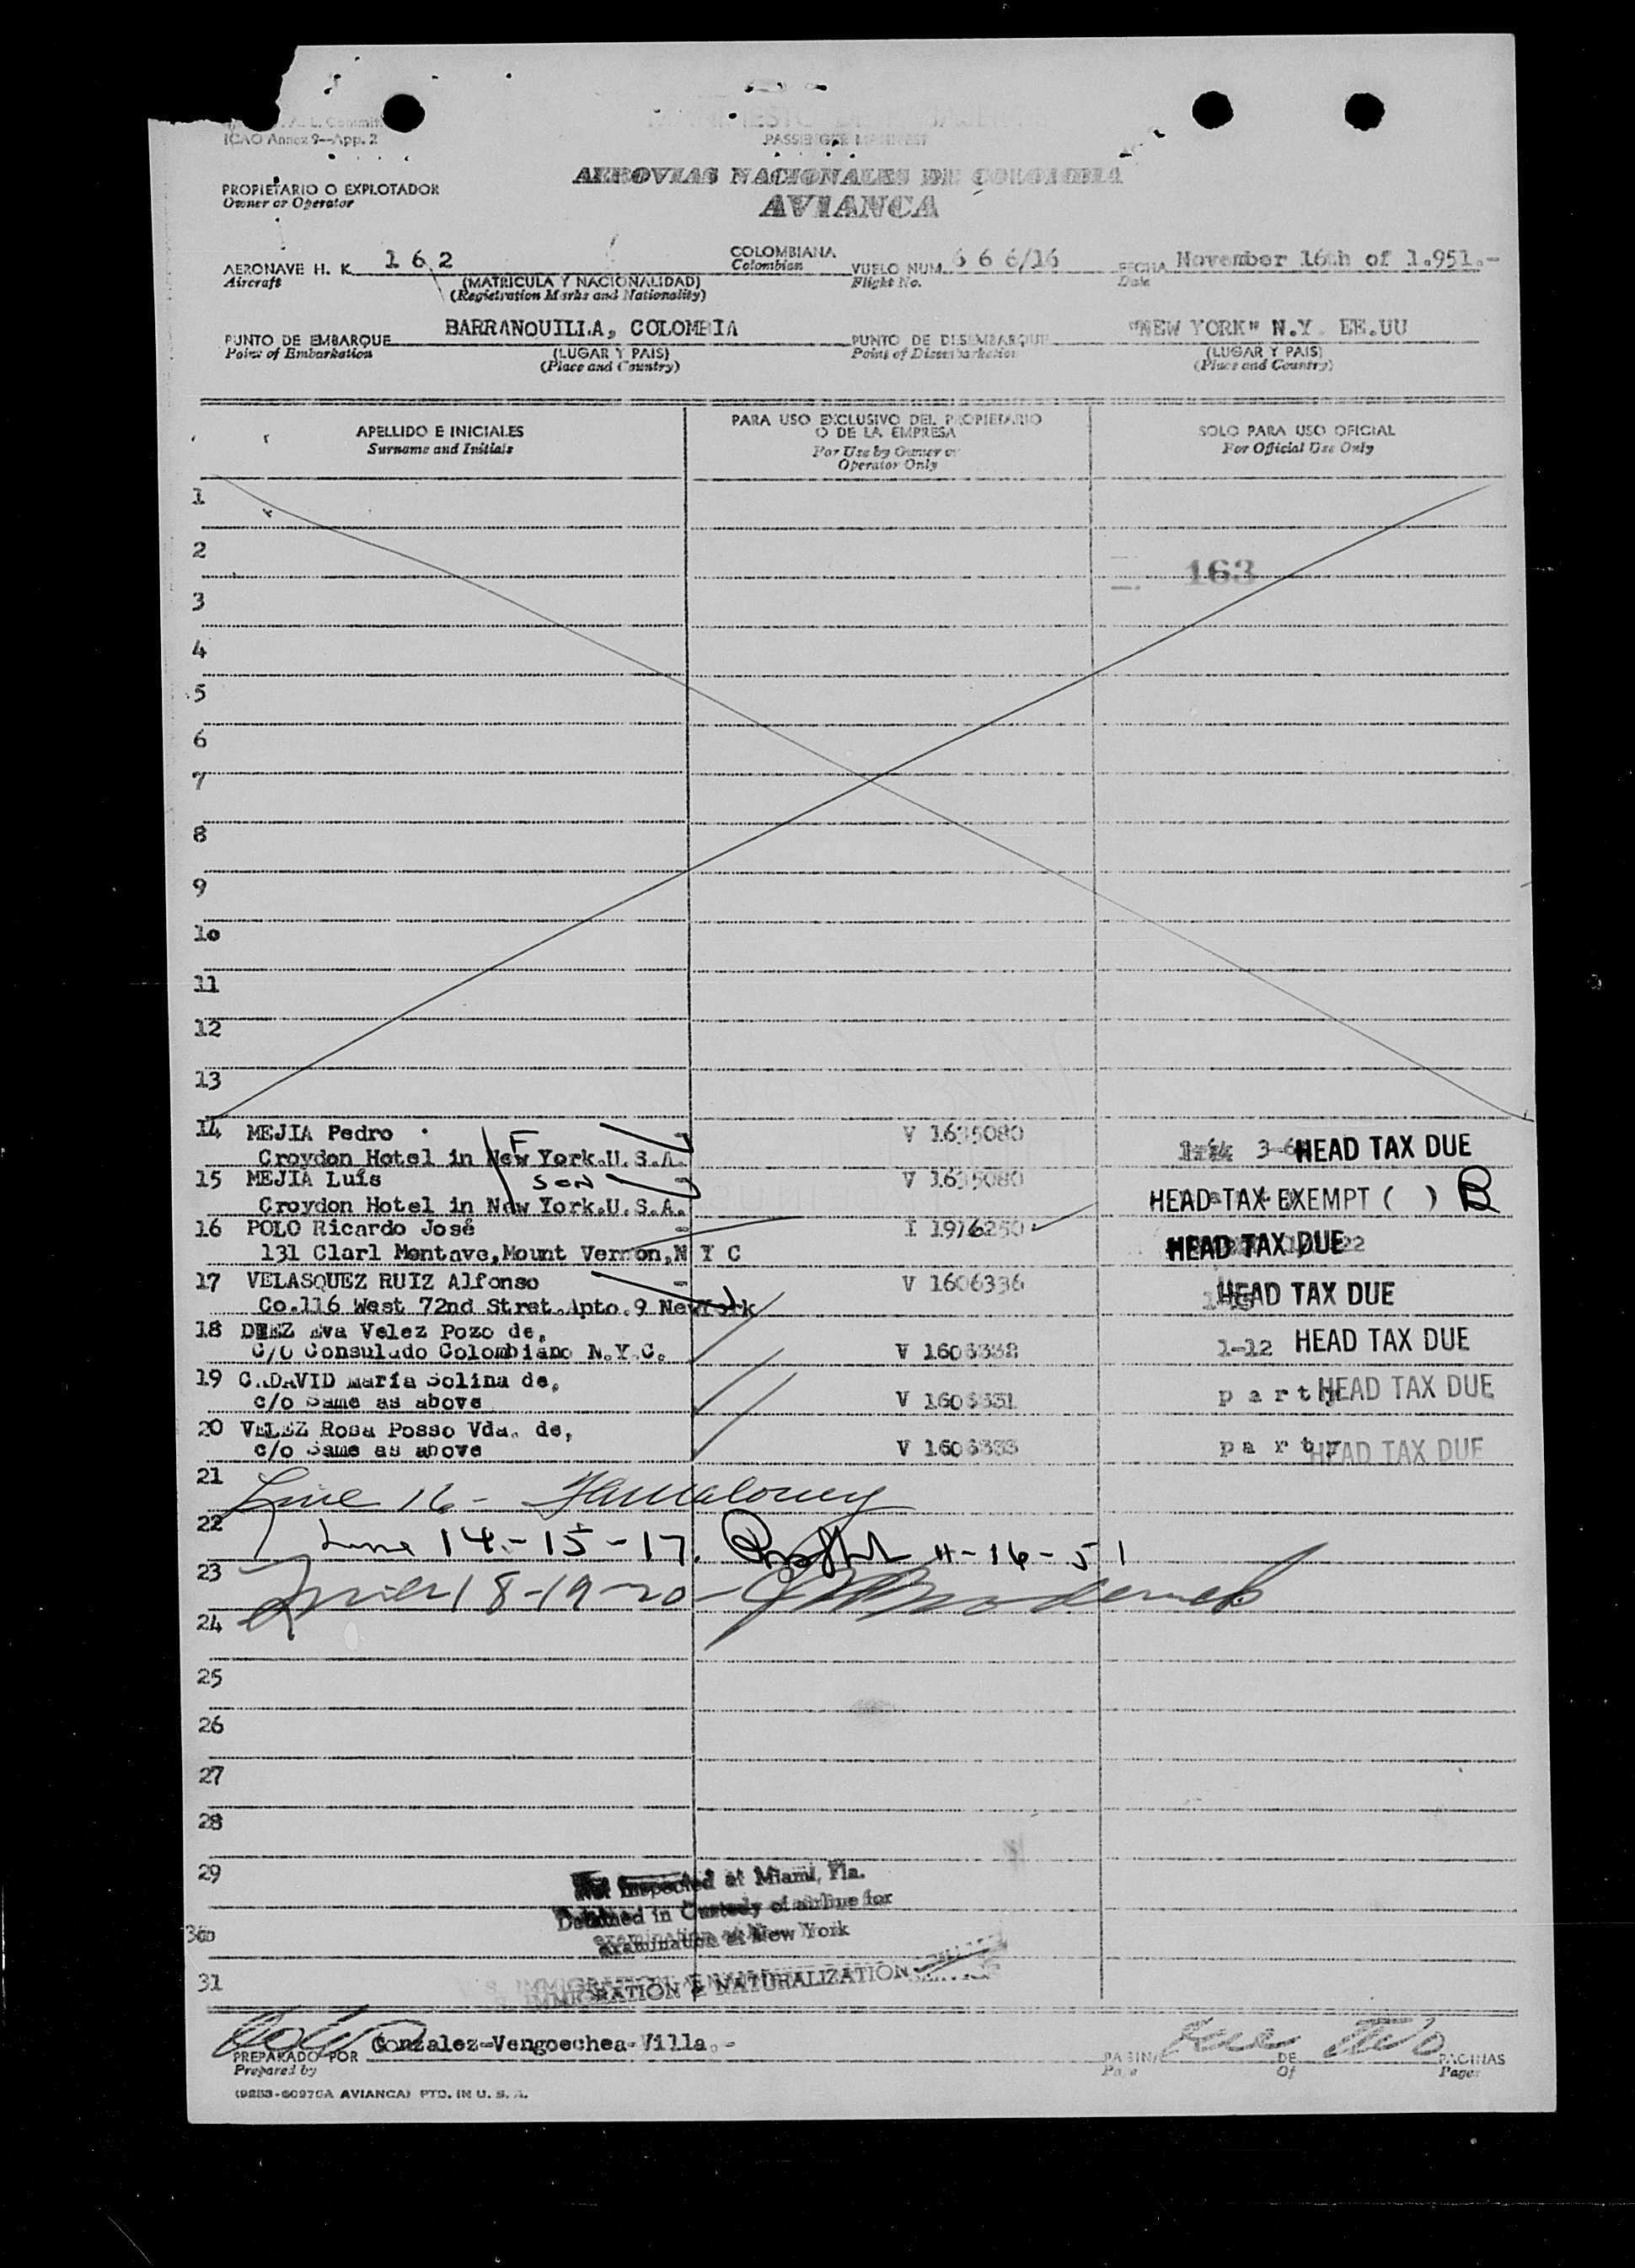 ICAO Annex 9—App. 2
PASSENGER MANIFEST
AEROVIAS NACIONALES DE COLOMBIA
AVIANCA
PROPIETARIO O EXPLOTADOR
Owner or Operator
AERONAVE H. K. 1 6 2 COLOMBIANA VUELO NUM. 6 6 6/16 FECHA November 16th of 1.951.-
Aircraft (MATRICULA Y NACIONALIDAD) Colombian Flight No. Date
(Registration Marks and Nationality)
PUNTO DE EMBARQUE BARRANQUILLA, COLOMBIA PUNTO DE DISEMBARQUE "NEW YORK" N.Y. EE.UU
Point of Embarkation (LUGAR Y PAIS) Point of Disembarkation (LUGAR Y PAIS)
(Place and Country) (Place and Country)
APELLIDO E INICIALES PARA USO EXCLUSIVO DEL PROPIETARIO O DE LA EMPRESA SOLO PARA USO OFICIAL
Surname and Initials For Use by Owner or Operator Only For Official Use Only
1
2
163
3
4
5
6
7
8
9
10
11
12
13
14 MEJIA Pedro F V 1635080 HEAD TAX DUE
Croydon Hotel in New York.U.S.A.
15 MEJIA Luís son V 1635080 HEAD TAX EXEMPT ( ) B
Croydon Hotel in New York.U.S.A.
16 POLO Ricardo José I 1976250 HEAD TAX DUE
131 Clarl Montave,Mount Vernon,N Y C
17 VELASQUEZ RUIZ Alfonso V 1606336 HEAD TAX DUE
Co.116 West 72nd Stret.Apto.9 NewYork
18 DIEZ Eva Velez Pozo de,
C/O Consulado Colombiano N.Y.C. V 1606338 1-12 HEAD TAX DUE
19 CADAVID María Solina de,
c/o Same as above V 1606331 party HEAD TAX DUE
20 VELEZ Rosa Posso Vda. de,
c/o Same as above V 1606333 party HEAD TAX DUE
21 Line 16 -
22 Line 14-15-17. 11-16-51
23 Lines 18-19-20-
24
25
26
27
28
29
Not Inspected at Miami, Fla.
Detained in Custody of airline for
30 examination at New York
31 U.S. IMMIGRATION & NATURALIZATION
PREPARADO POR Gonzalez-Vengoechea-Villa.- PAGINA DE Two PAGINAS
Prepared by Page Of Pages
(9253-60976A AVIANCA) PTD. IN U. S. A.